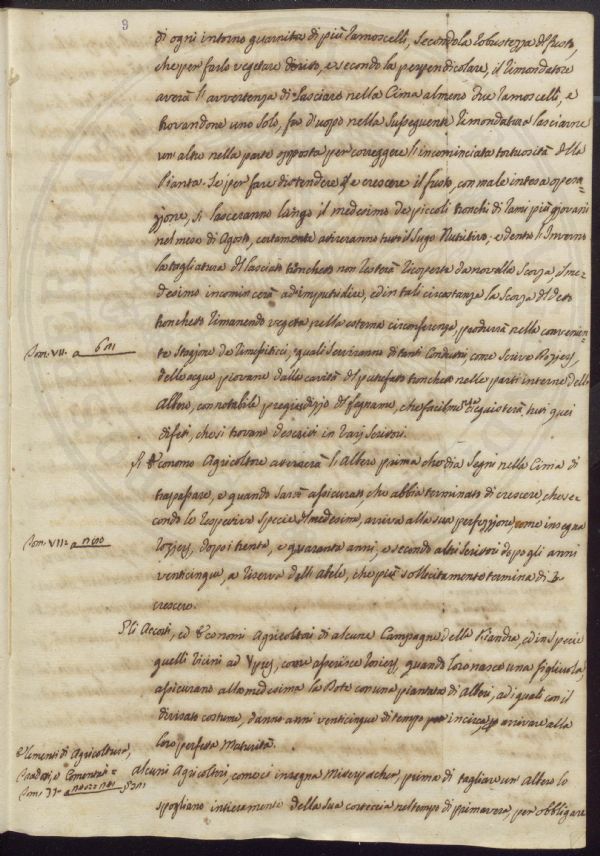 9
di ogni intorno guarnita di più ramoscelli, secondo la robustezza del fusto,
che per farlo vegetare dirito, e secondo la perpendicolare, il rimondatore
averà l'avvertenza di lasciare nella Cima almeno due ramoscelli, e
trovandone uno solo, fia d'uopo nella susseguente rimondatura lasciarne
un altro nella parte opposta per correggere l'incominciata tortuosità della
Pianta. Se per fare distendere e crescere il fusto, con male intesa opera-
zione, si lasceranno lungo il medesimo de piccoli tronchi di rami più giovani
nel mese di Agosto, certamente attireranno tutto il sugo Nutritivo, e dentro l'Inverno
la tagliatura del lasciato tronchetto non resterà ricoperta da novella scorza, il me-
desimo incomincerà ad imputridire, ed in tali circostanze la scorza del detto
tronchetto rimanendo vegeta nella esterna circonferenza, produrrà nella convenien-
Tom. VII. a 6 te Stagione de rimessiticci, quali serviranno di tanti Condutti, come scrive Rozier,
delle acque piovane dalla cavità del putrefatto tronchetto nelle parti interne dello
Albero, con notabile pregiudizio del legname, che facilmente acquisterà tutti quei
difetti, che si trovano descritti in varj Scrittori.
L'Economo Agricoltore atterrerà l'Albero prima che dia segni nella Cima di
trapassare, e quando sarà assicurato, che abbia terminato di crescere, che se-
condo le respettive specie del medesimo, arriva alla sua perfezzione come insegna
Tom. VIII. a Rozier, dopo i trenta, e quaranta anni, e secondo altri Scrittori dopo gli anni
venticinque, a riserva dell'Abete, che più sollecitamente termina di
crescere.
Gli Accorti, ed Economi Agricoltori di alcune Campagne della Fiandra, ed in specie
quelli vicini ad Ypres, come asserisce Rozier, quando loro nasce una figliuola,
assicurano alla medesima la Dote con una piantata di Alberi, ai quali con il
divisato costume, danno anni venticinque di tempo per incirca, per arrivare alla
loro perfetta Maturità.
Elementi di Agricoltura,
Tradotti, e Comentati
Tom. II. a
Alcuni Agricoltori, come ci insegna Mitterpacher, prima di tagliare un Albero lo
spogliano intieramente della sua corteccia nel tempo di primavera, per obbligare